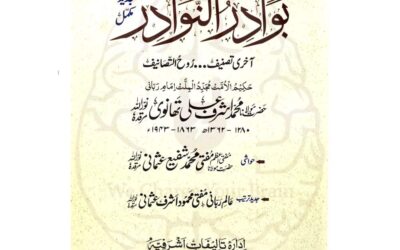 بوادر النوادر
مکمل
آخری تصنیف ... روح التصانیف
حکیم الامت مجدد الملت امام ربانی
حضرت مولانا محمد اشرف علی تھانوی نوراللہ مرقدہ
۱۲۸۰ - ۱۳۶۲ھ ۱۸۶۳ - ۱۹۴۳ء
حواشی مفتی اعظم حضرت مولانا مفتی محمد شفیع عثمانی نوراللہ مرقدہ
جدید ترتیب عالم ربانی مفتی محمود اشرف عثمانی نوراللہ مرقدہ
ادارہ تالیفات اشرفیہ